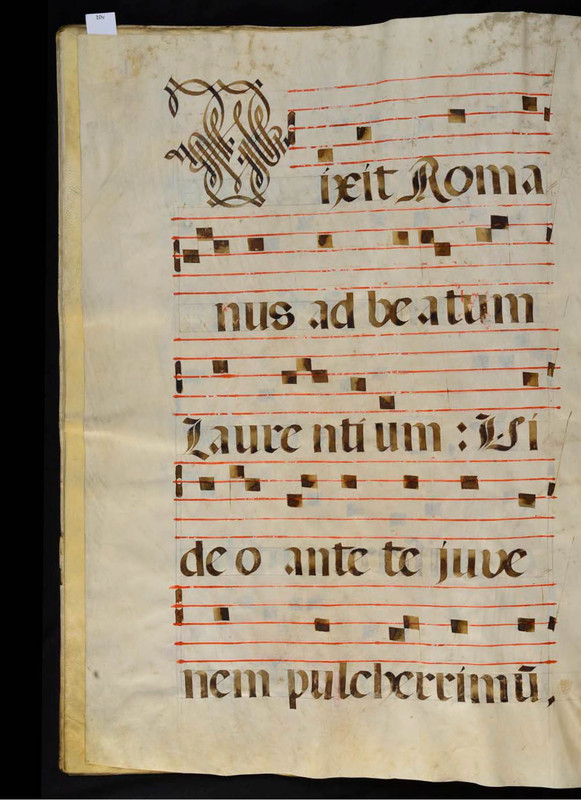 Dixit Roma
nus ad beatum
Laurentium : Vi
deo ante te juve
nem pulcherrimū,